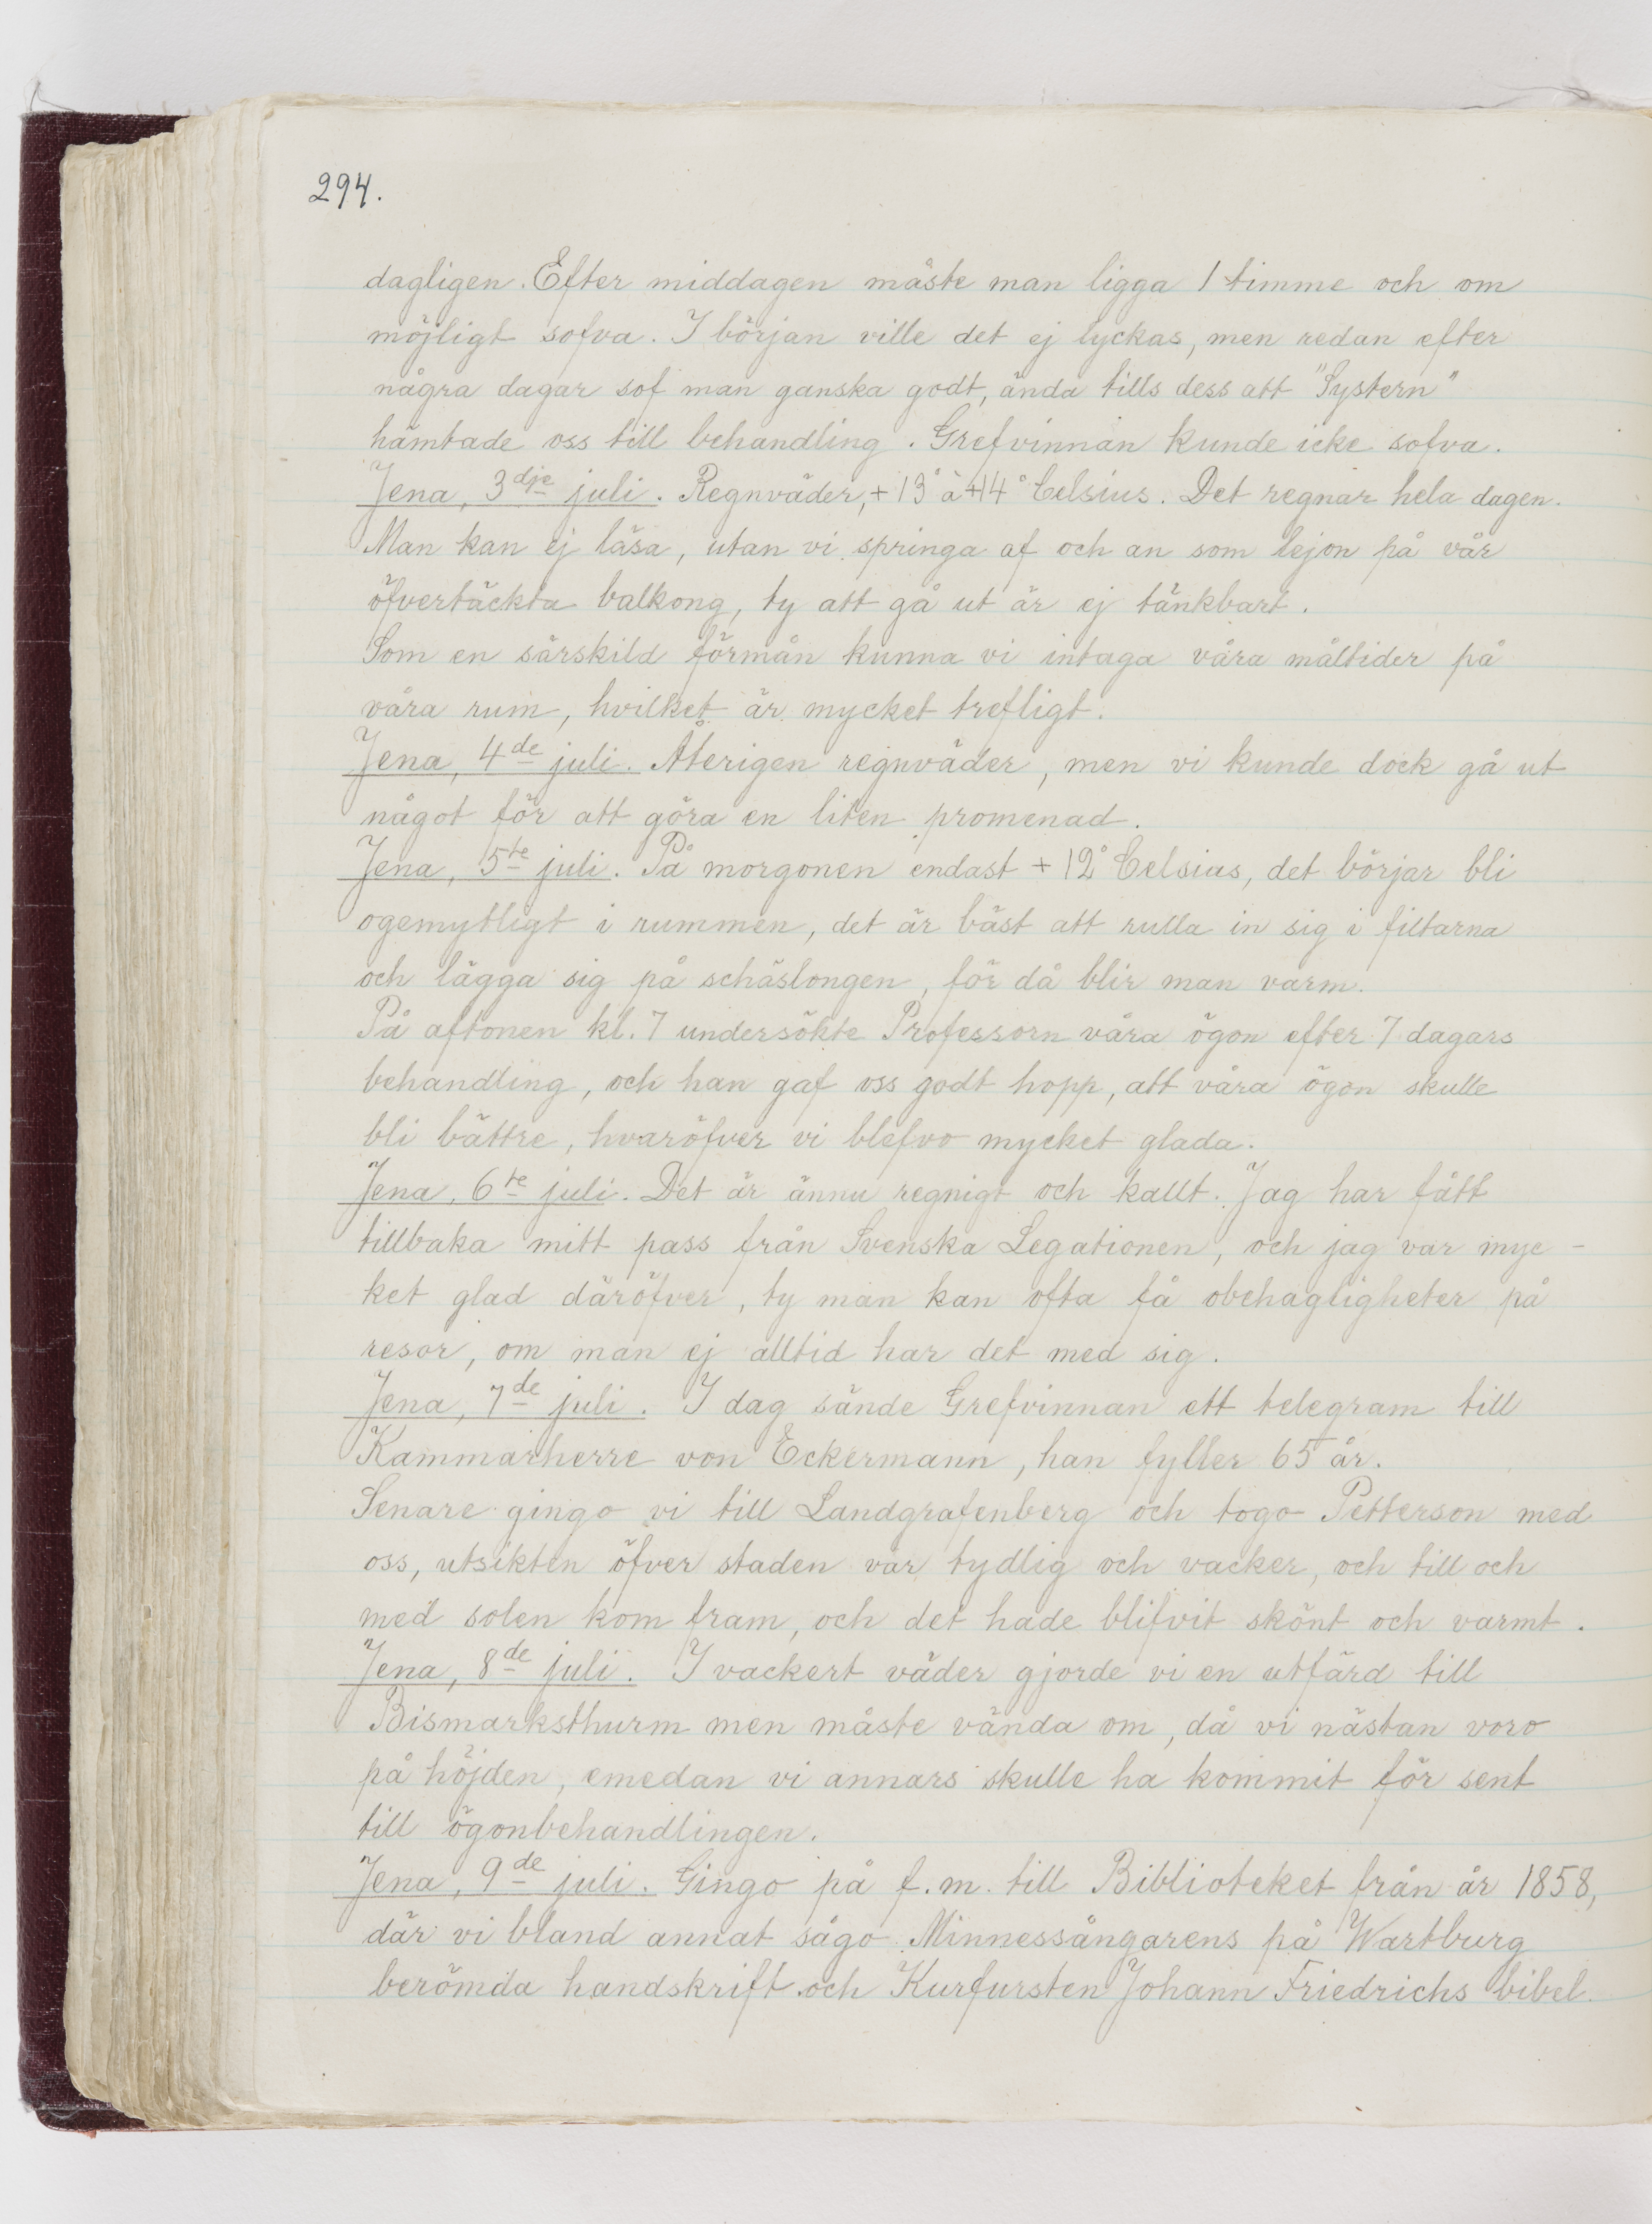 294.
dagligen. Efter middagen måste man ligga 1 timme och om
möjligt sofva. I början ville det ej lyckas, men redan efter
några dagar sof man ganska godt, ända tills dess att "Systern"
hämtade oss till behandling. Grefvinnan kunde icke sofva.
Jena, 3dje juli. Regnväder, + 13° à +14° Celsius. Det regnar hela dagen.
Man kan ej läsa, utan vi springa af och an som lejon på vår
öfvertäckta balkong, ty att gå ut är ej tänkbart.
Som en särskild förmån kunna vi intaga våra måltider på
våra rum, hvilket är mycket trefligt.
Jena, 4de juli. Återigen regnväder, men vi kunde dock gå ut
något för att göra en liten promenad.
Jena, 5te juli. På morgonen endast + 12° Celsius, det börjar bli
ogemytligt i rummen, det är bäst att rulla in sig i filtarna
och lägga sig på schäslongen, för då blir man varm.
På aftonen kl. 7 undersökte Professorn våra ögon efter 7 dagars
behandling, och han gaf oss godt hopp, att våra ögon skulle
bli bättre, hvaröfver vi blefvo mycket glada.
Jena, 6te juli. Det är ännu regnigt och kallt. Jag har fått
tillbaka mitt pass från Svenska Legationen, och jag var myc-
ket glad däröfver, ty man kan ofta få obehagligheter på
resor, om man ej alltid har det med sig.
Jena, 7de juli. I dag sände Grefvinnan ett telegram till
Kammarherre von Eckermann, han fyller 65 år.
Senare gingo vi till Landgrafenberg och togo Petterson med
oss, utsikten öfver staden var tydlig och vacker, och till och
med solen kom fram, och det hade blifvit skönt och varmt.
Jena, 8de juli. I vackert väder gjorde vi en utfärd till
Bismarksthurm men måste vända om, då vi nästan voro
på höjden, emedan vi annars skulle ha kommit för sent
till ögonbehandlingen.
Jena, 9de juli. Gingo på f.m. till Biblioteket från år 1858,
där vi bland annat sågo Minnessångarens på Wartburg
berömda handskrift och Kurfursten Johann Friedrichs bibel.